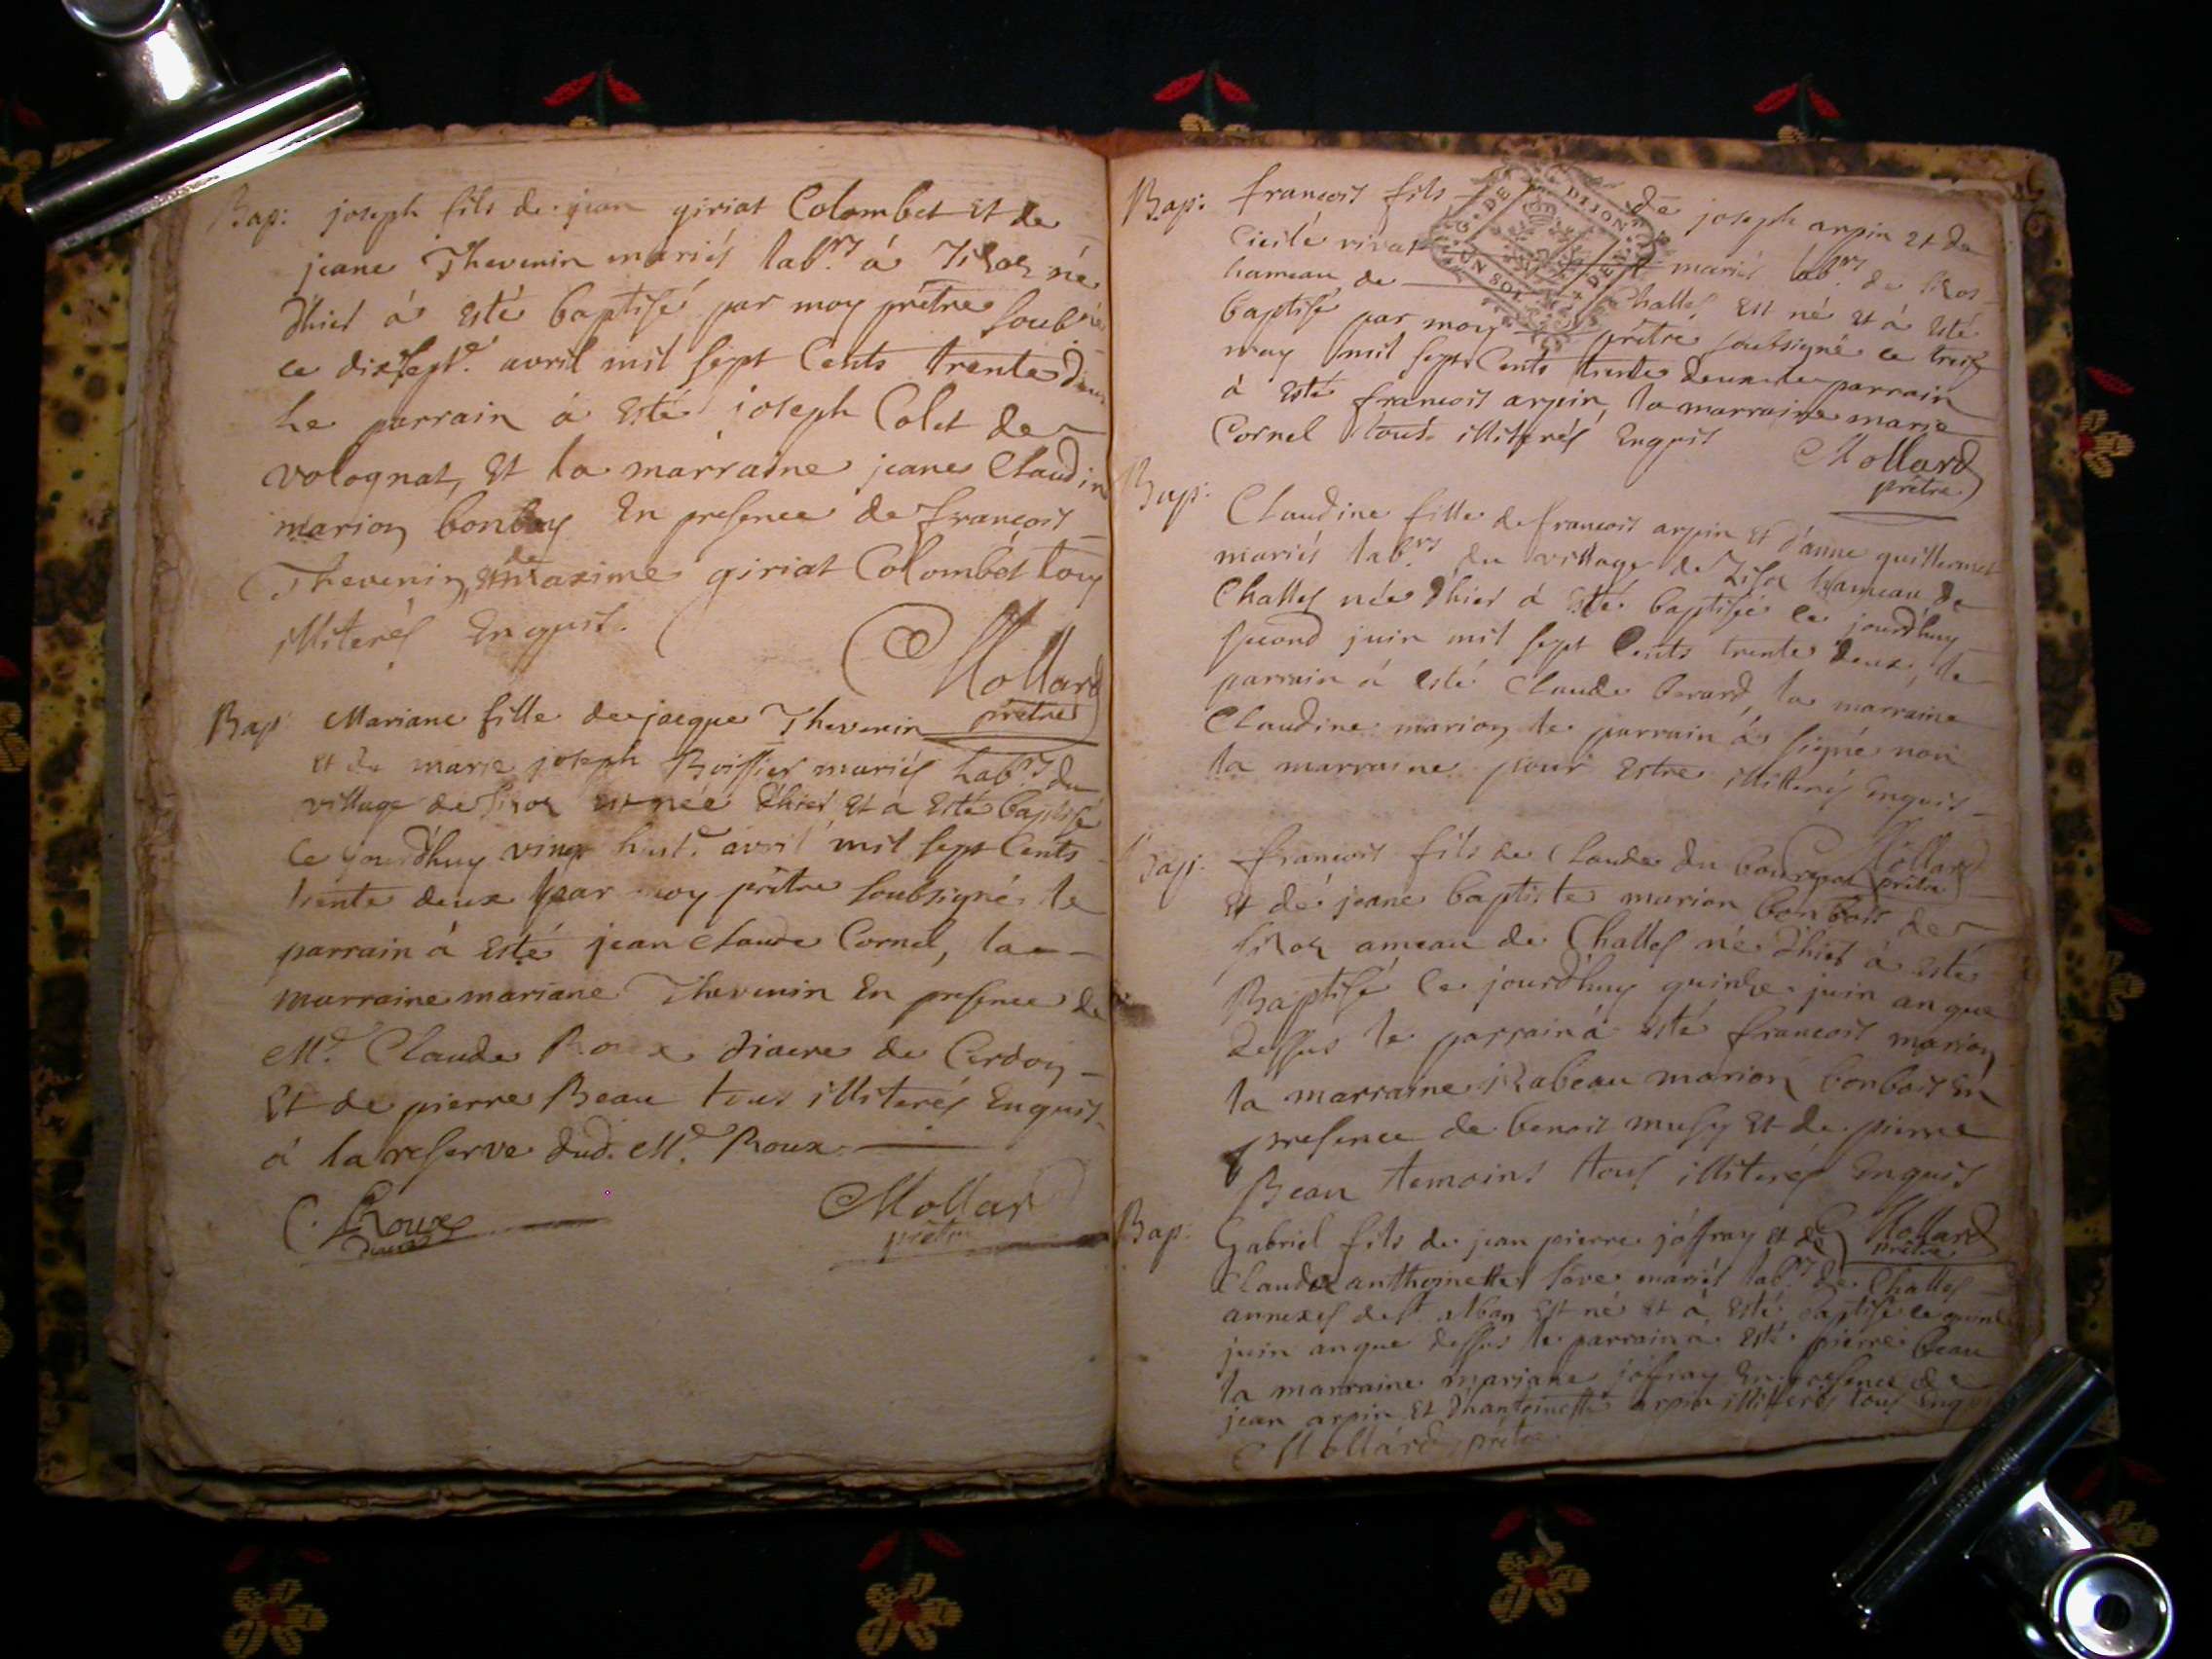 Bap: joseph fils de jean giriat Colombet Et de
jeane Thevenin mariés lab.rs á né
dhier á Esté baptisé par moy prêtre soubné
ce dixsept.e avril mil sept Cents trente deux
Le parrain á Esté joseph Colet de
volognat, Et la marraine jeane Claudin
marion bonboy En presence de francois
Thevenin, Et de maxime giriat Colombet tous
illiterés Enquis.
Mollard
prêtre
Bap: Mariane fille de jacque Thevenin
et de marie joseph Boissier mariés lab.rs du
village de est née dhier Et a Esté baptisé
ce jourdhuy vingt huit.e avril mil sept Cents
trente deux par moy prêtre soubsigné le
parrain á Esté jean claude Cornel, la
marraine mariane Thevenin En presence de
M.e Claude Roux diacre de Cerdon
Et de pierre Beau tous illiterés Enquis
á la reserve dud. M.e Roux
C. Roux
diacre
Mollard
prêtre
Bap: francois fils de joseph arpin et de
mariés lab.rs de
hameau de Challes Est né et á Esté
baptisé par moy prêtre soubsigné ce treiz
may mil sept Cents trente deux le parrain
á Esté francois arpin, la marraine marie
Cornel tous illiterés Enquis
Mollard
prêtre
G. DE DIJON
UN SOL
DEN
Bap: Claudine fille de francois arpin Et d'anne guillermet
mariés lab.rs du village de hameau de
Challes née dhier á Esté baptisée ce jourdhuy
second juin mil sept Cents trente deux, le
parrain á esté Claude berard, la marraine
Claudine marion, le parrain á signé non
la marraine pour Estre illiterés Enquis
Mollard
prêtre
Bap: francois fils de Claude du
Et de jeane baptiste marion bonbois de
ameau de Challes né dhier á Esté
Baptisé Ce jourdhuy quinze juin an que
dessus le parrain á esté francois marion
la marraine marion bonbois En
presence de benoit musy Et de pierre
Beau temoins tous illiterés Enquis
Mollard
prêtre
Bap: Gabriel fils de jean pierre joffray et de
Claudee anthoinette mariés lab.rs de Challes
annexes de st alban Est né et á Esté baptisé ce
juin an que dessus le parrain á Esté pierre beau
la marraine mariane joffray En presence de
jean arpin Et danthoinette arpin illiterés tous
Mollard prêtre